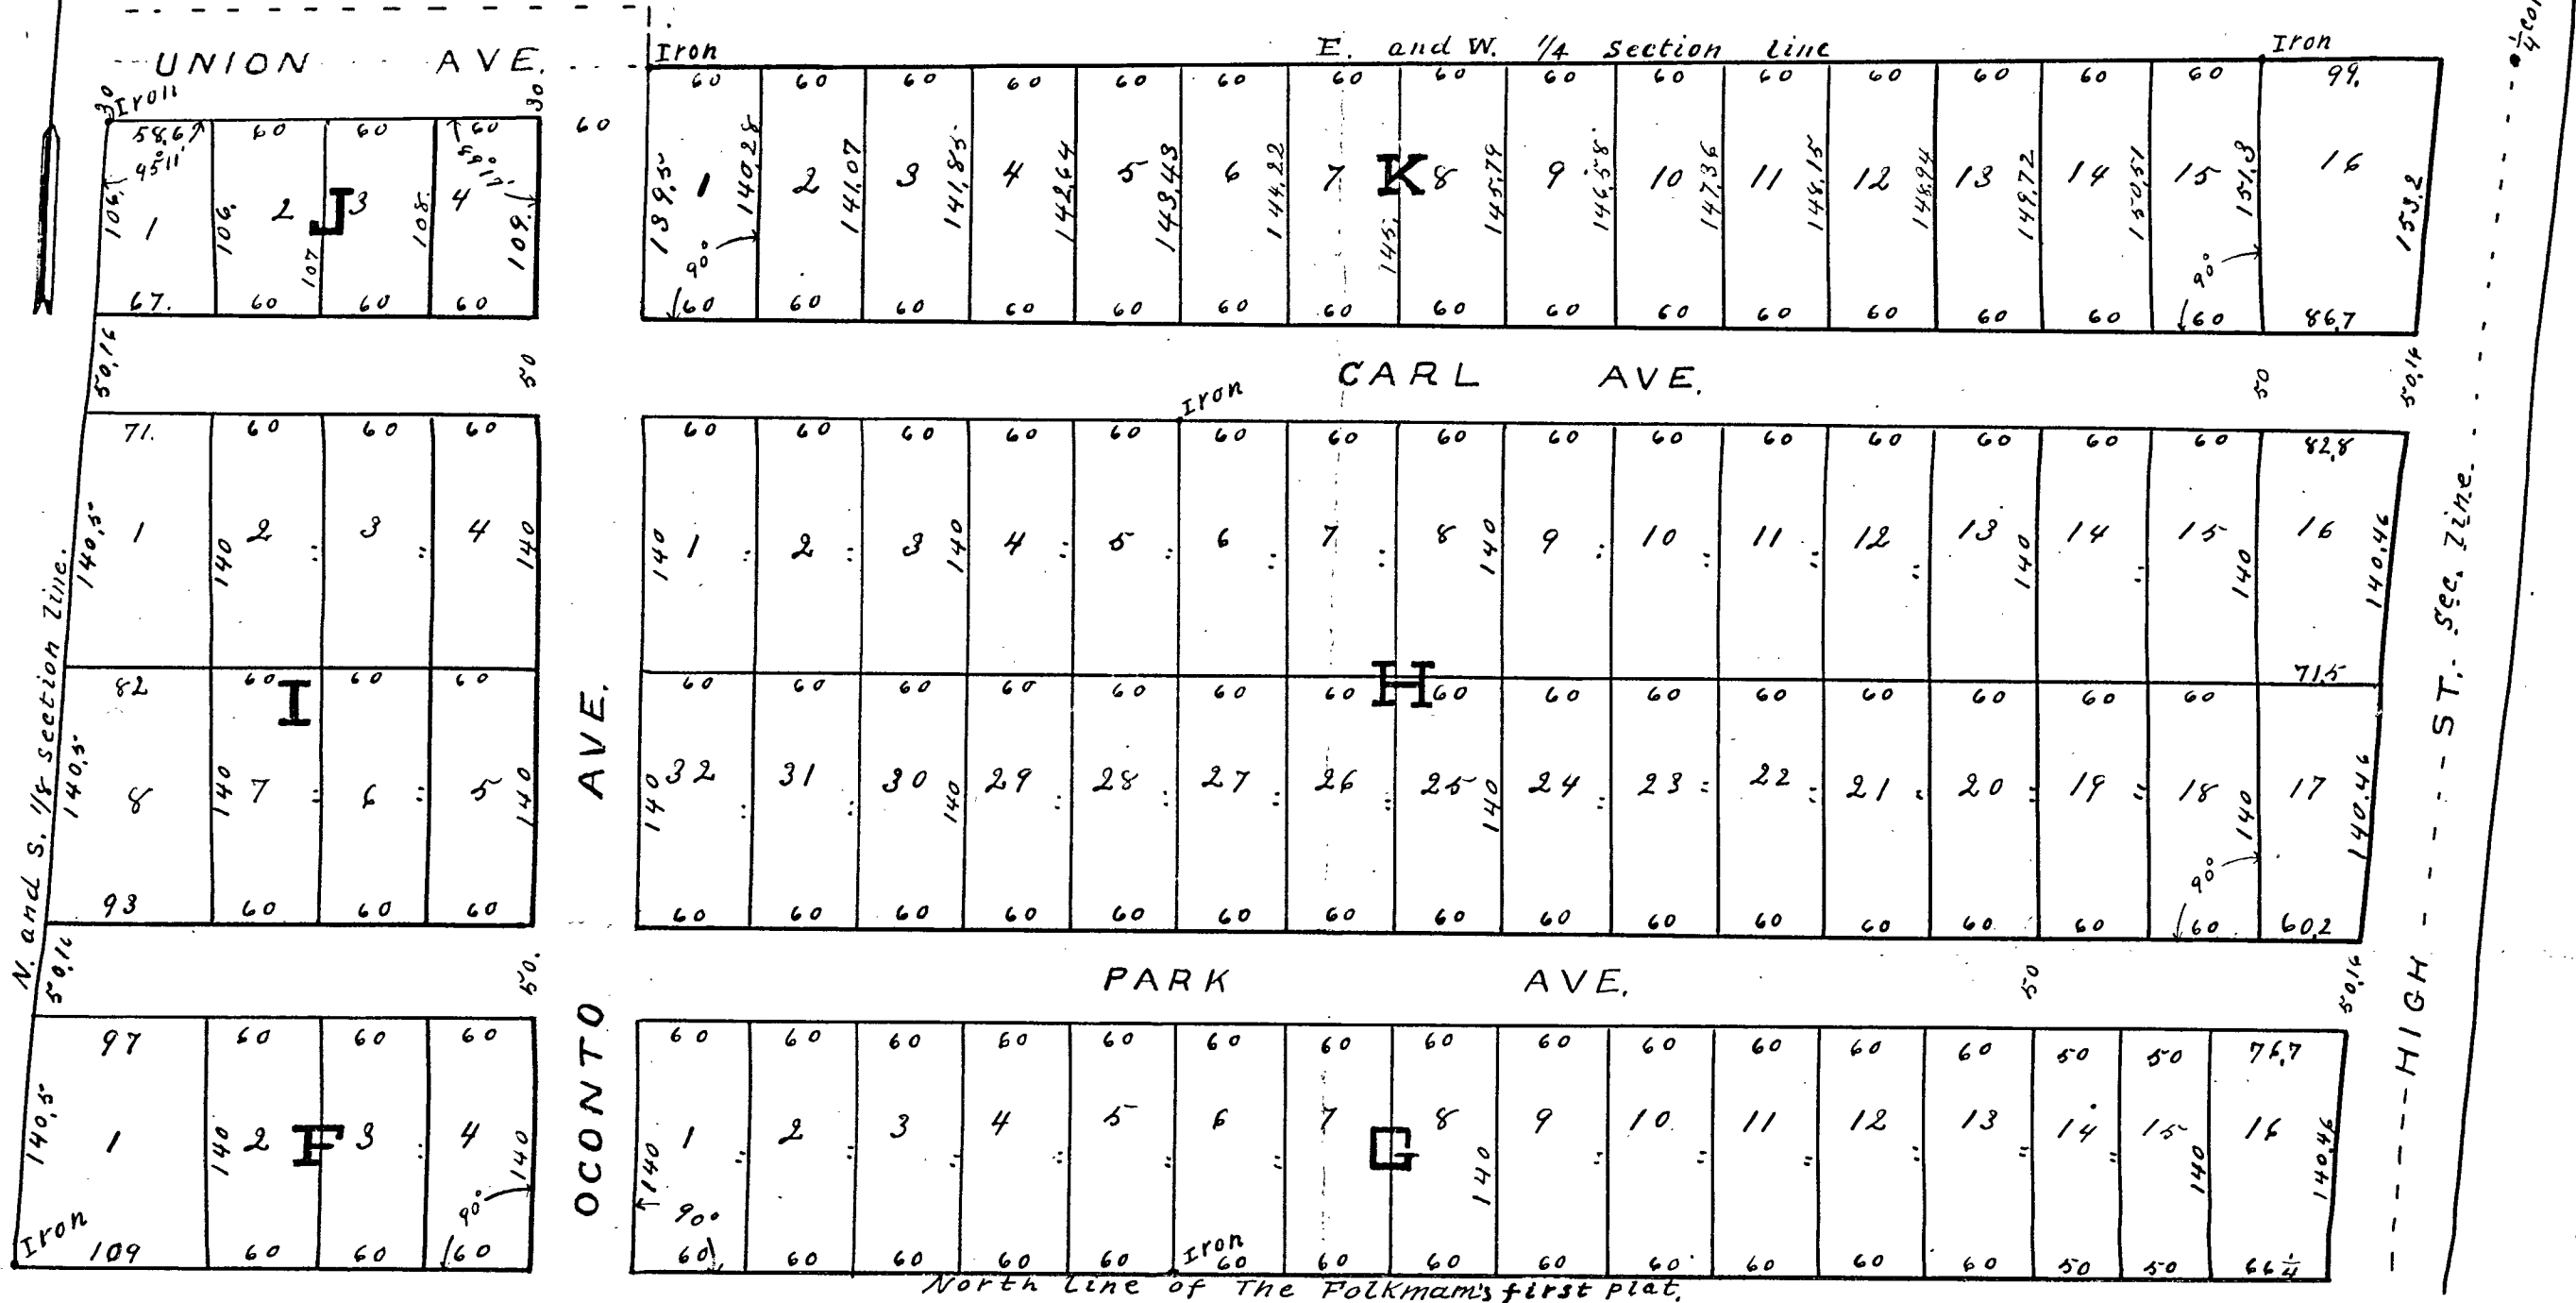 UNION AVE.
Iron
E. and W. 1/4 Section line
Iron
1/4 cor
30 Iron 30 60
58.6 60 60 60
95°11'
106. 106. 107 108. 109.
1 2 J 3 4
67. 60 60 60
60 60 60 60 60 60 60 60 60 60 60 60 60 60 60 99.
139.5 140.28 141.07 141.85 142.64 143.43 144.22 145. 145.79 146.58 147.36 148.15 148.94 149.72 150.51 151.3 153.2
1 2 3 4 5 6 7 K 8 9 10 11 12 13 14 15 16
90° 90°
60 60 60 60 60 60 60 60 60 60 60 60 60 60 60 86.7
50.16 50 CARL AVE. 50 50.16
Iron
71. 60 60 60
140.5 1 140 2 " 3 " 4 140
82 60 60 60
I
140.5 8 140 7 " 6 " 5 140
93 60 60 60
60 60 60 60 60 60 60 60 60 60 60 60 60 60 60 82.8
140 1 " 2 " 3 140 4 " 5 " 6 " 7 " 8 140 9 " 10 " 11 " 12 " 13 140 14 " 15 140 16 140.46
71.5
H
60 60 60 60 60 60 60 60 60 60 60 60 60 60 60
140 32 " 31 " 30 140 29 " 28 " 27 " 26 " 25 140 24 " 23 " 22 " 21 " 20 " 19 " 18 140 17 140.46
90°
60 60 60 60 60 60 60 60 60 60 60 60 60 60 60 60.2
50.16 50. PARK AVE. 50 50.16
97 60 60 60
140.5 1 140 2 F 3 " 4 140
90°
Iron 109 60 60 60
60 60 60 60 60 60 60 60 60 60 60 60 60 50 50 76.7
140 1 " 2 " 3 " 4 " 5 " 6 " 7 G 8 140 9 " 10 " 11 " 12 " 13 " 14 " 15 140 16 140.46
90°
Iron
60 60 60 60 60 60 60 60 60 60 60 60 60 50 50 66 1/4
North Line of The Folkmam's first plat.
N. and S. 1/8 section line.
OCONTO AVE.
HIGH ST. Sec. Line.